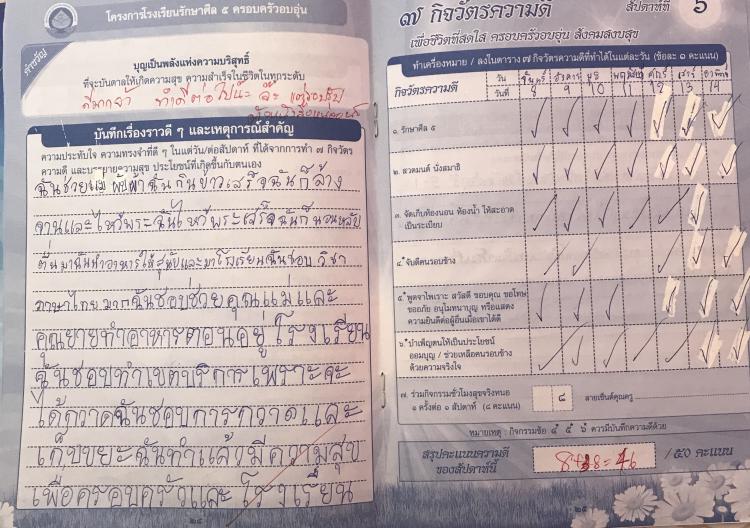 โครงการโรงเรียนรักษาศีล ๕ ครอบครัวอบอุ่น
คำขวัญ
บุญเป็นพลังแห่งความบริสุทธิ์
ที่จะบันดาลให้เกิดความสุข ความสำเร็จในชีวิตในทุกระดับ
บันทึกเรื่องราวดี ๆ และเหตุการณ์สำคัญ
ความประทับใจ ความทรงจำที่ดี ๆ ในแต่ละวัน/ต่อสัปดาห์ ที่ได้จากการทำ ๗ กิจวัตร
ความดี และบรรยายความสุข ประโยชน์ที่เกิดขึ้นกับตนเอง
ฉันช่วยแม่ ฉันกินข้าวเสร็จฉันก็ล้าง
จานและไหว้พระฉันไหว้พระเสร็จฉันก็นอนหลับ
ตื่นมาฉันทำอาหารให้สุนัขและมาโรงเรียนฉันชอบ วิชา
ภาษาไทย มากฉันชอบช่วยคุณแม่และ
คุณยายทำอาหารตอนอยู่ โรงเรียน
ฉันชอบทำเขตบริการเพราะจะ
ได้กวาดฉันชอบการกวาดและ
เก็บขยะฉันทำแล้วมีความสุข
เพื่อครอบครัวและ โรงเรียน
๒๔
๗ กิจวัตรความดี
สัปดาห์ที่ 5
เพื่อชีวิตที่สดใส ครอบครัวอบอุ่น สังคมสงบสุข
ทำเครื่องหมาย / ลงในตาราง ๗ กิจวัตรความดีที่ทำได้ในแต่ละวัน (ข้อละ ๑ คะแนน)
กิจวัตรความดี
วัน จันทร์ อังคาร พุธ พฤหัส ศุกร์ เสาร์ อาทิตย์
วันที่ 8 9 10 11 12 13 14
๑. รักษาศีล ๕
๒. สวดมนต์ นั่งสมาธิ
๓. จัดเก็บห้องนอน ห้องน้ำ ให้สะอาด
เป็นระเบียบ
๔. จับดีคนรอบข้าง
๕. พูดจาไพเราะ สวัสดี ขอบคุณ ขอโทษ
ขออภัย อนุโมทนาบุญ หรือแสดง
ความยินดีต่อผู้อื่นเมื่อเขาได้ดี
๖. บำเพ็ญตนให้เป็นประโยชน์
ออมบุญ / ช่วยเหลือคนรอบข้าง
ด้วยความจริงใจ
๗. ร่วมกิจกรรมชั่วโมงสุขจริงหนอ
๑ ครั้งต่อ ๑ สัปดาห์ (๘ คะแนน)
๘
ลายเซ็นต์คุณครู
หมายเหตุ : กิจกรรมข้อ ๔ ๕ ๖ ควรมีบันทึกความดีด้วย
สรุปคะแนนความดี
ของสัปดาห์นี้
8+38=46
/ ๕๐ คะแนน
๒๕